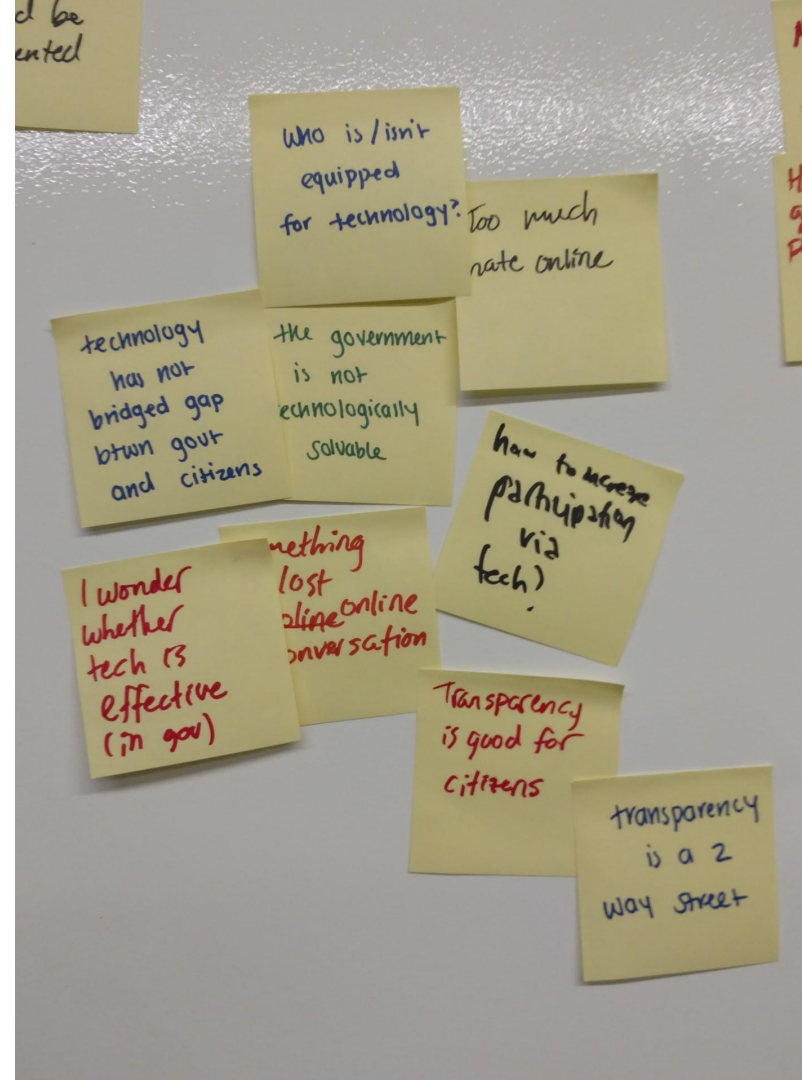 d be
ented
Who is/isn't
equipped
for technology?
Too much
hate online
technology
has not
bridged gap
btwn govt
and citizens
the government
is not
echnologically
solvable
how to increase
participation
via
tech?
I wonder
whether
tech is
effective
(in gov)
mething
lost
online
onversation
Transparency
is good for
citizens
transparency
is a 2
way street